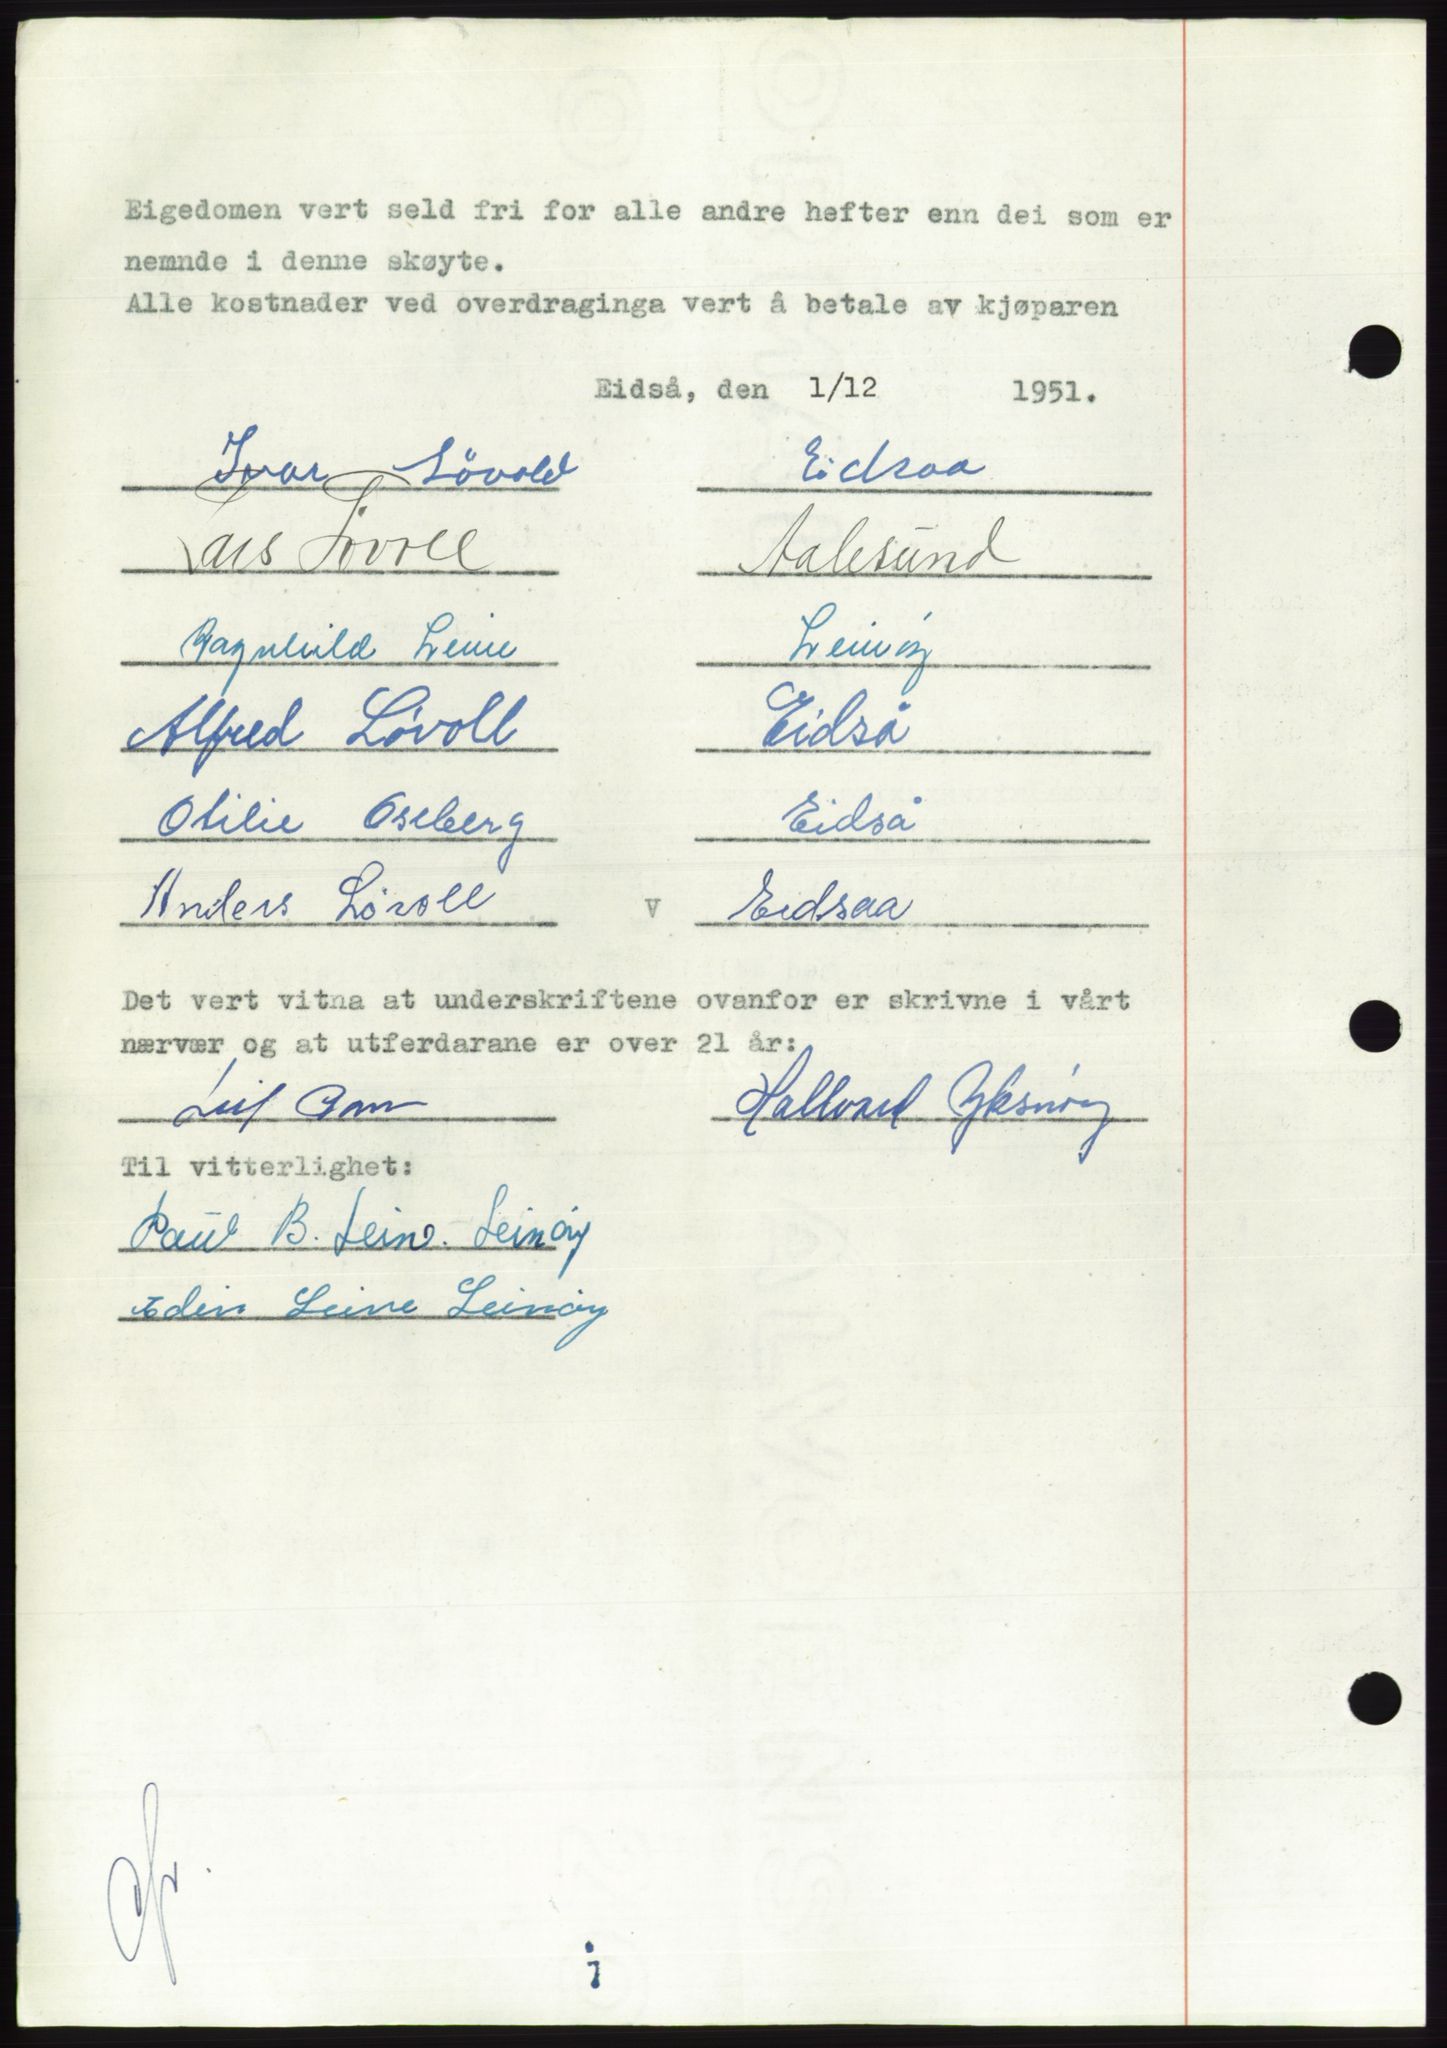 Eigedomen vert seld fri for alle andre hefter enn dei som er
nemnde i denne skøyte.
Alle kostnader ved overdraginga vert å betale av kjøparen
Eidså, den 1/12 1951.
Ivar Lövold Eidsaa
Lars Lövoll Aalesund
Ragnhild Leine Leinøy
Alfred Løvoll Eidså
Otilie Oseberg Eidså
Anders Løvoll v Eidsaa
Det vert vitna at underskriftene ovanfor er skrivne i vårt
nærvær og at utferdarane er over 21 år:
Leif Hallvard Yksnøy
Til vitterlighet:
Paul B. Lein. Leinøy
Edin Leine Leinøy